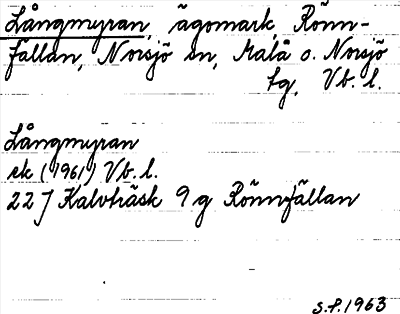 Långmyran, ägomark, Rönn-
fällan, Norsjö sn, Malå o. Norsjö
tg, Vb. l.
Långmyran
ek (1961) Vb. l.
22 J Kalvträsk 9 g Rönnfällan
S.f. 1963